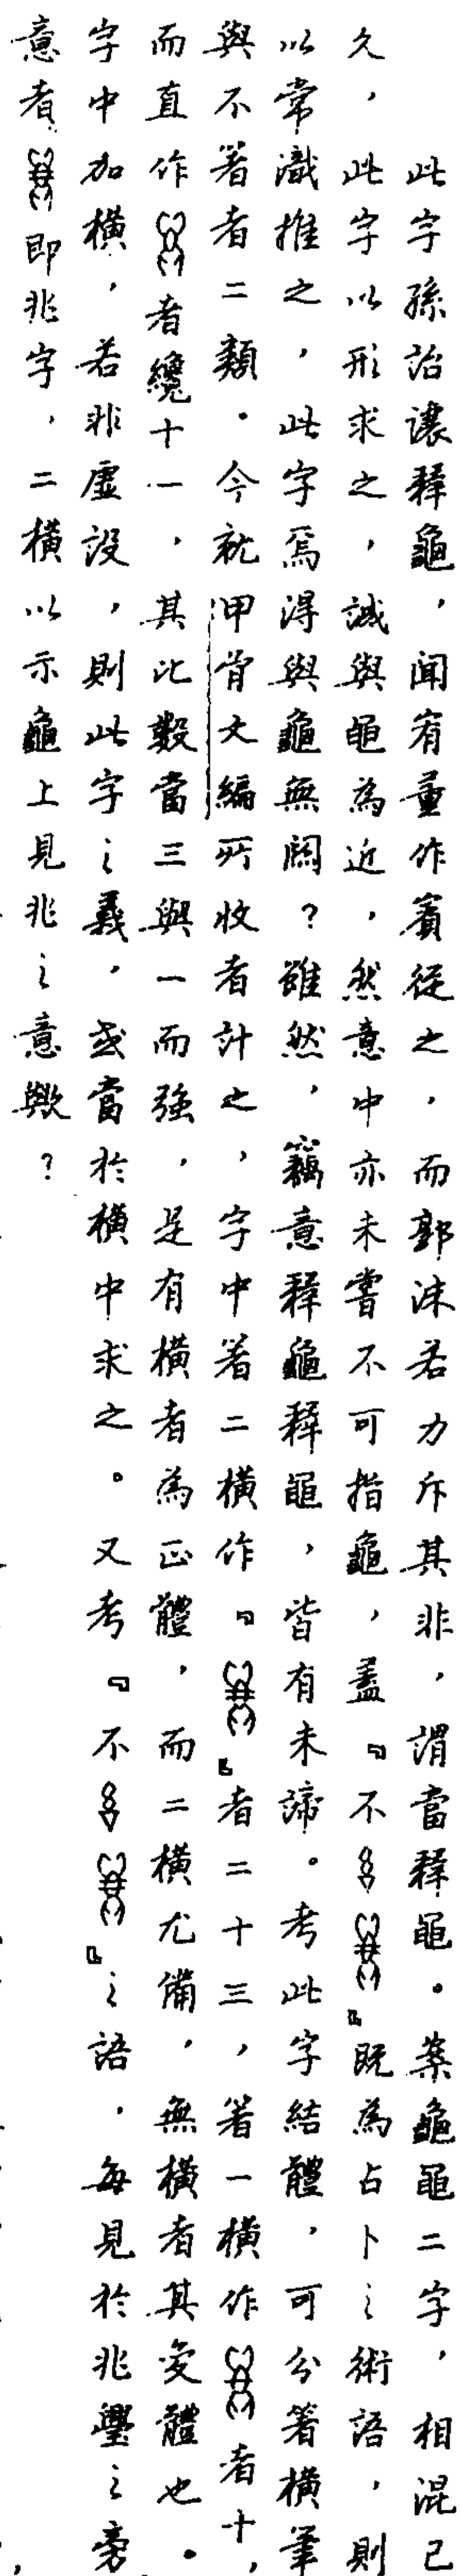 此字孫詒讓釋龜，聞宥董作賓從之，而郭沫若力斥其非，謂當釋黽。案龜黽二字，相混已
久，此字以形求之，誠與黽為近，然意中亦未嘗不可指龜，蓋『不』既為占卜之術語，則
以常識推之，此字焉得與龜無關？雖然，竊意釋龜釋黽，皆有未諦。考此字結體，可分着橫筆
與不着者二類。今就甲骨文編所收者計之，字中着二橫作『』者二十三，着一橫作者十，
而直作者纔十一，其比數當三與一而強，是有橫者為正體，而二橫尤備，無橫者其變體也。
字中加橫，若非虛設，則此字之義，或當於橫中求之。又考『不』之語，每見於兆璺之旁
意者即兆字，二橫以示龜上見兆之意歟？